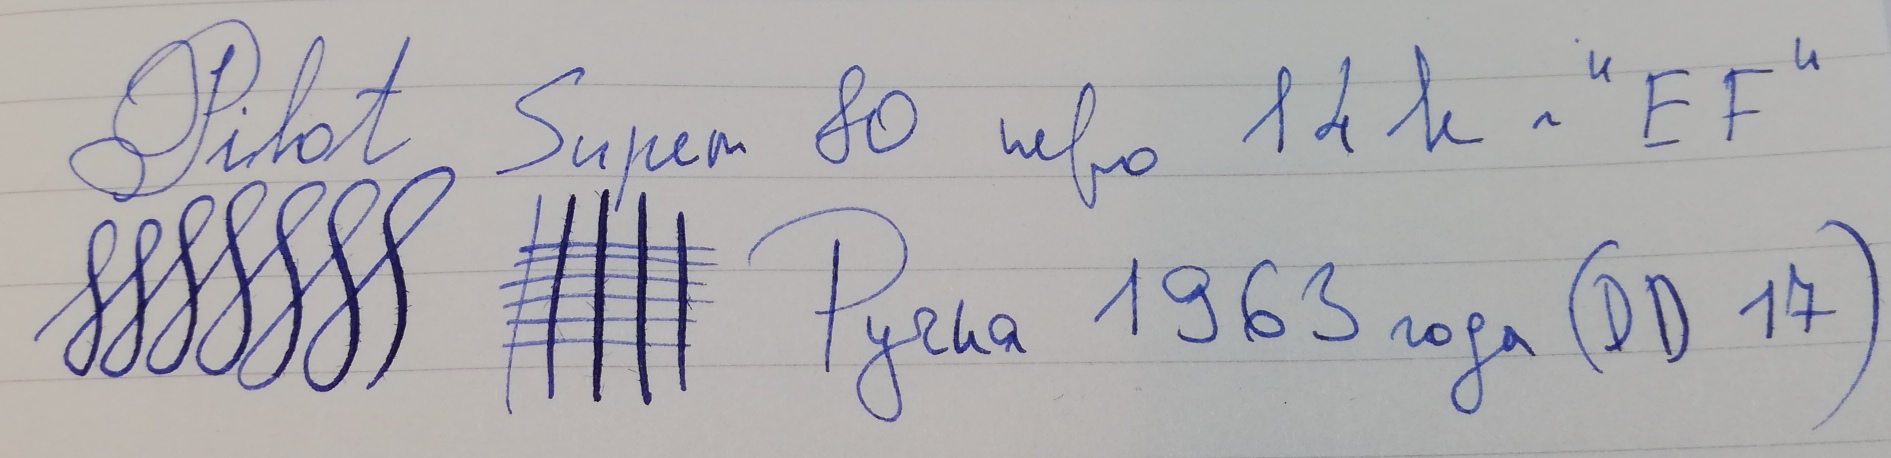 Pilot Super 80 перо 14k ~ "EF"
Ручка 1963 года (DD 17)